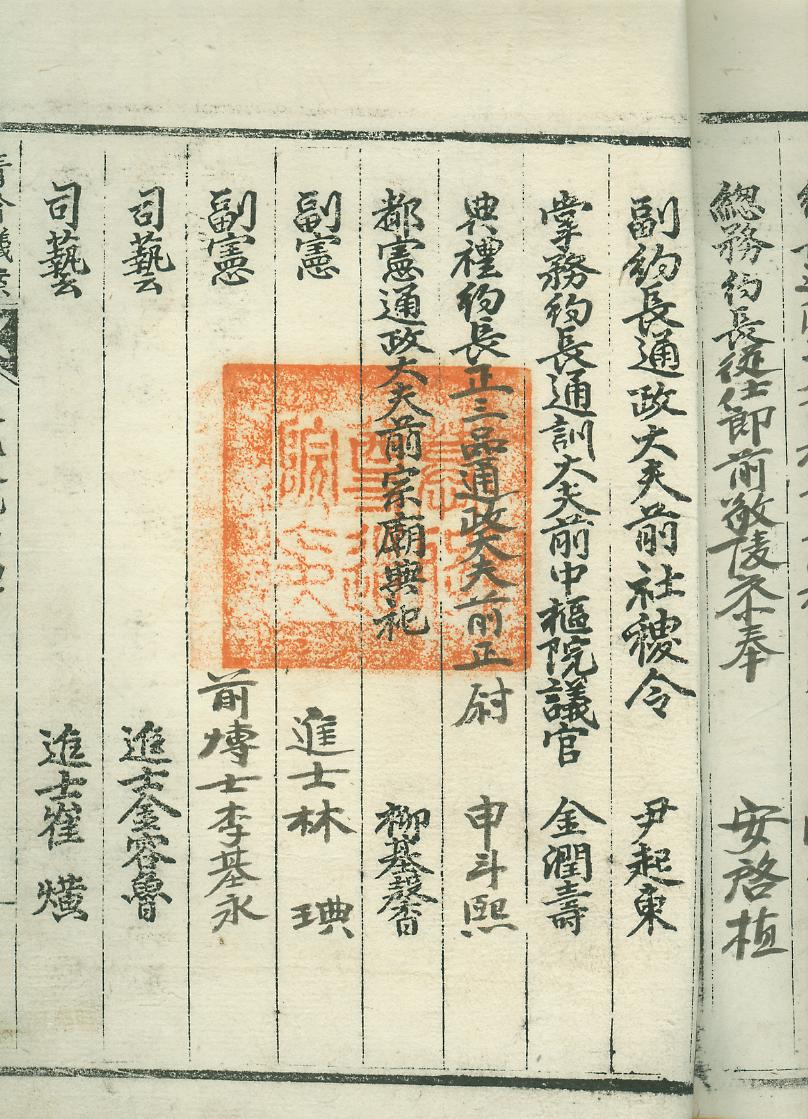 總務約長從仕郎前敬陵參奉 安啓植
副約長通政大夫前社稷令 尹起東
掌務約長通訓大夫前中樞院議官 金潤壽
典禮約長正三品通政大夫前正尉 申斗熙
都憲通政大夫前宗廟典祀 柳基馨
副憲 進士林㙉
副憲 前博士李基永
司藝 進士金容魯
司藝 進士崔爌